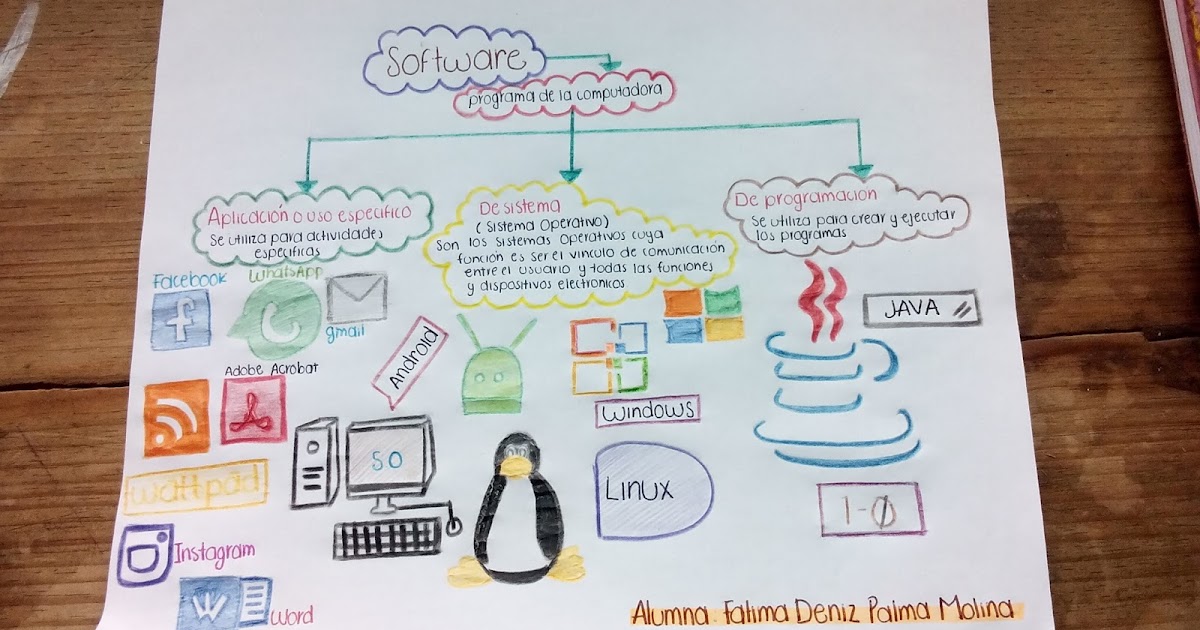 Software
programa de la computadora
Aplicación o uso especifico
Se utiliza para actividades
especificas
De sistema
(Sistema Operativo)
Son los Sistemas Operativos cuya
función es ser el vinculo de comunicación
entre el usuario y todas las funciones
y dispositivos electronicos
De programacion
Se utiliza para crear y ejecutar
los programas
Facebook
f
WhatsApp
gmail
Adobe Acrobat
wattpad
Instagram
W
Word
Android
SO
Windows
Linux
JAVA
1-0
Alumna: Fatima Deniz Palma Molina